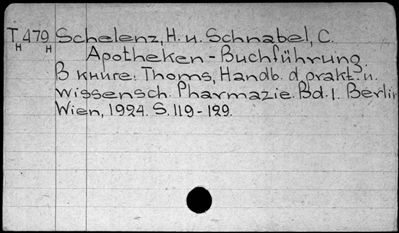 T 479 Schelenz, H. u. Schnabel, C.
H H
Apotheken-Buchführung.
В книге: Thoms, Handb. d. prakt. u.
wissensch. Pharmazie. Bd. 1. Berlin
Wien, 1924. S. 119-129.